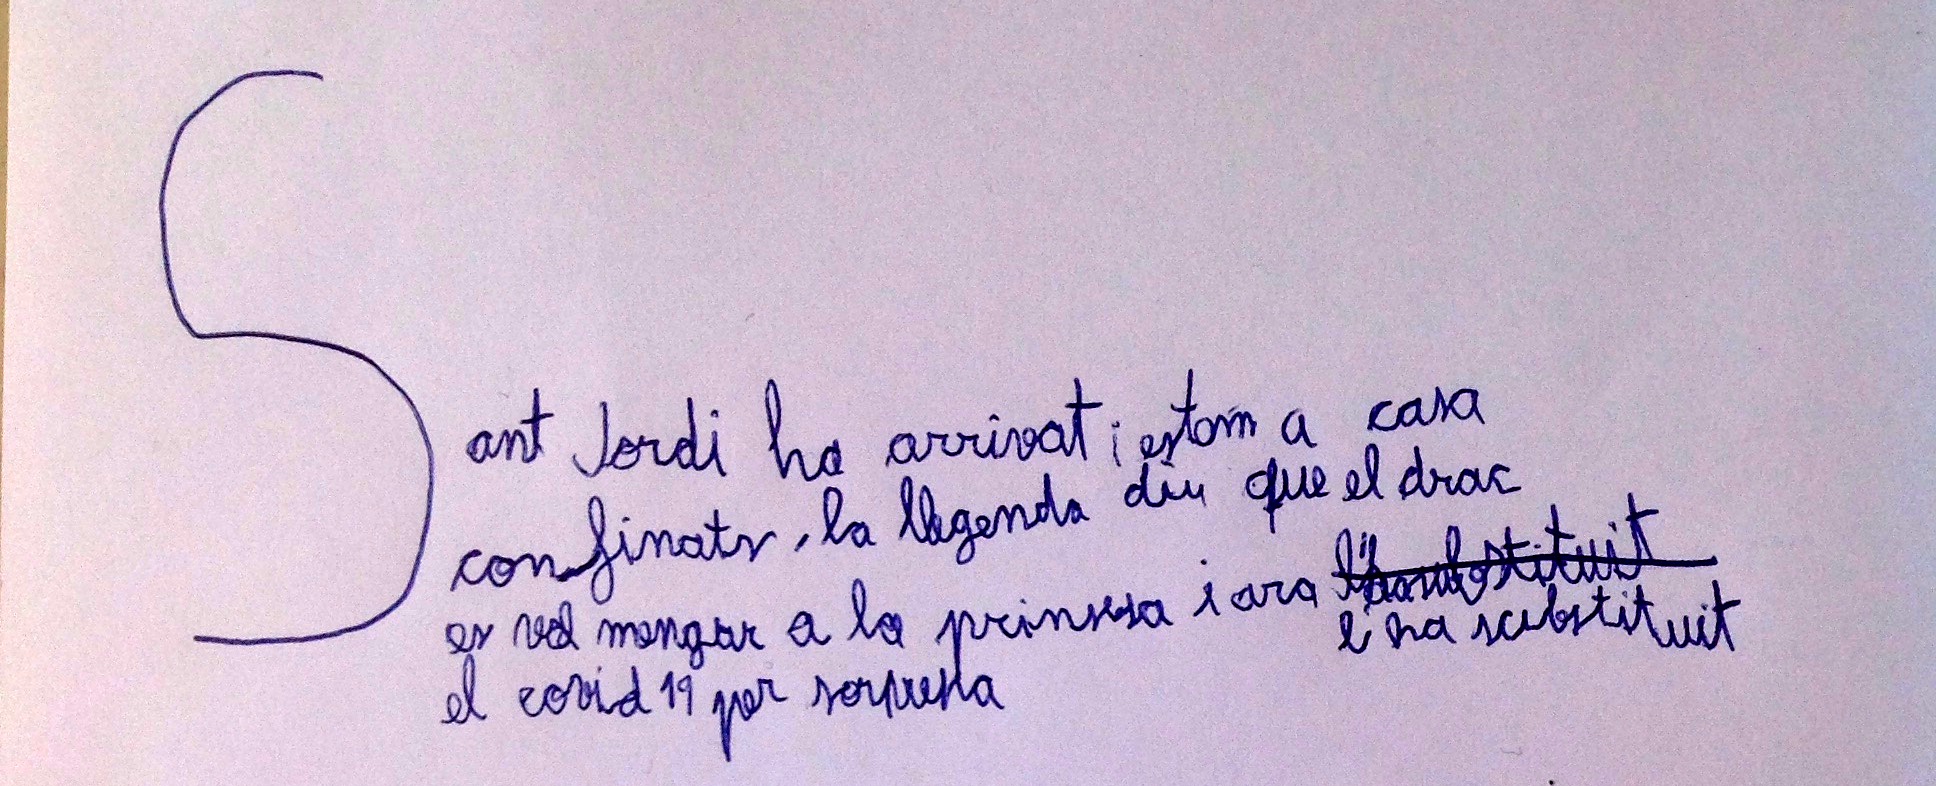 Sant Jordi ha arrivat i estam a casa
confinats, la llegenda diu que el drac
es vol mengar a la prinsesa i ara l'ha substituit
l'ha substituit
el covid 19 per sorpresa